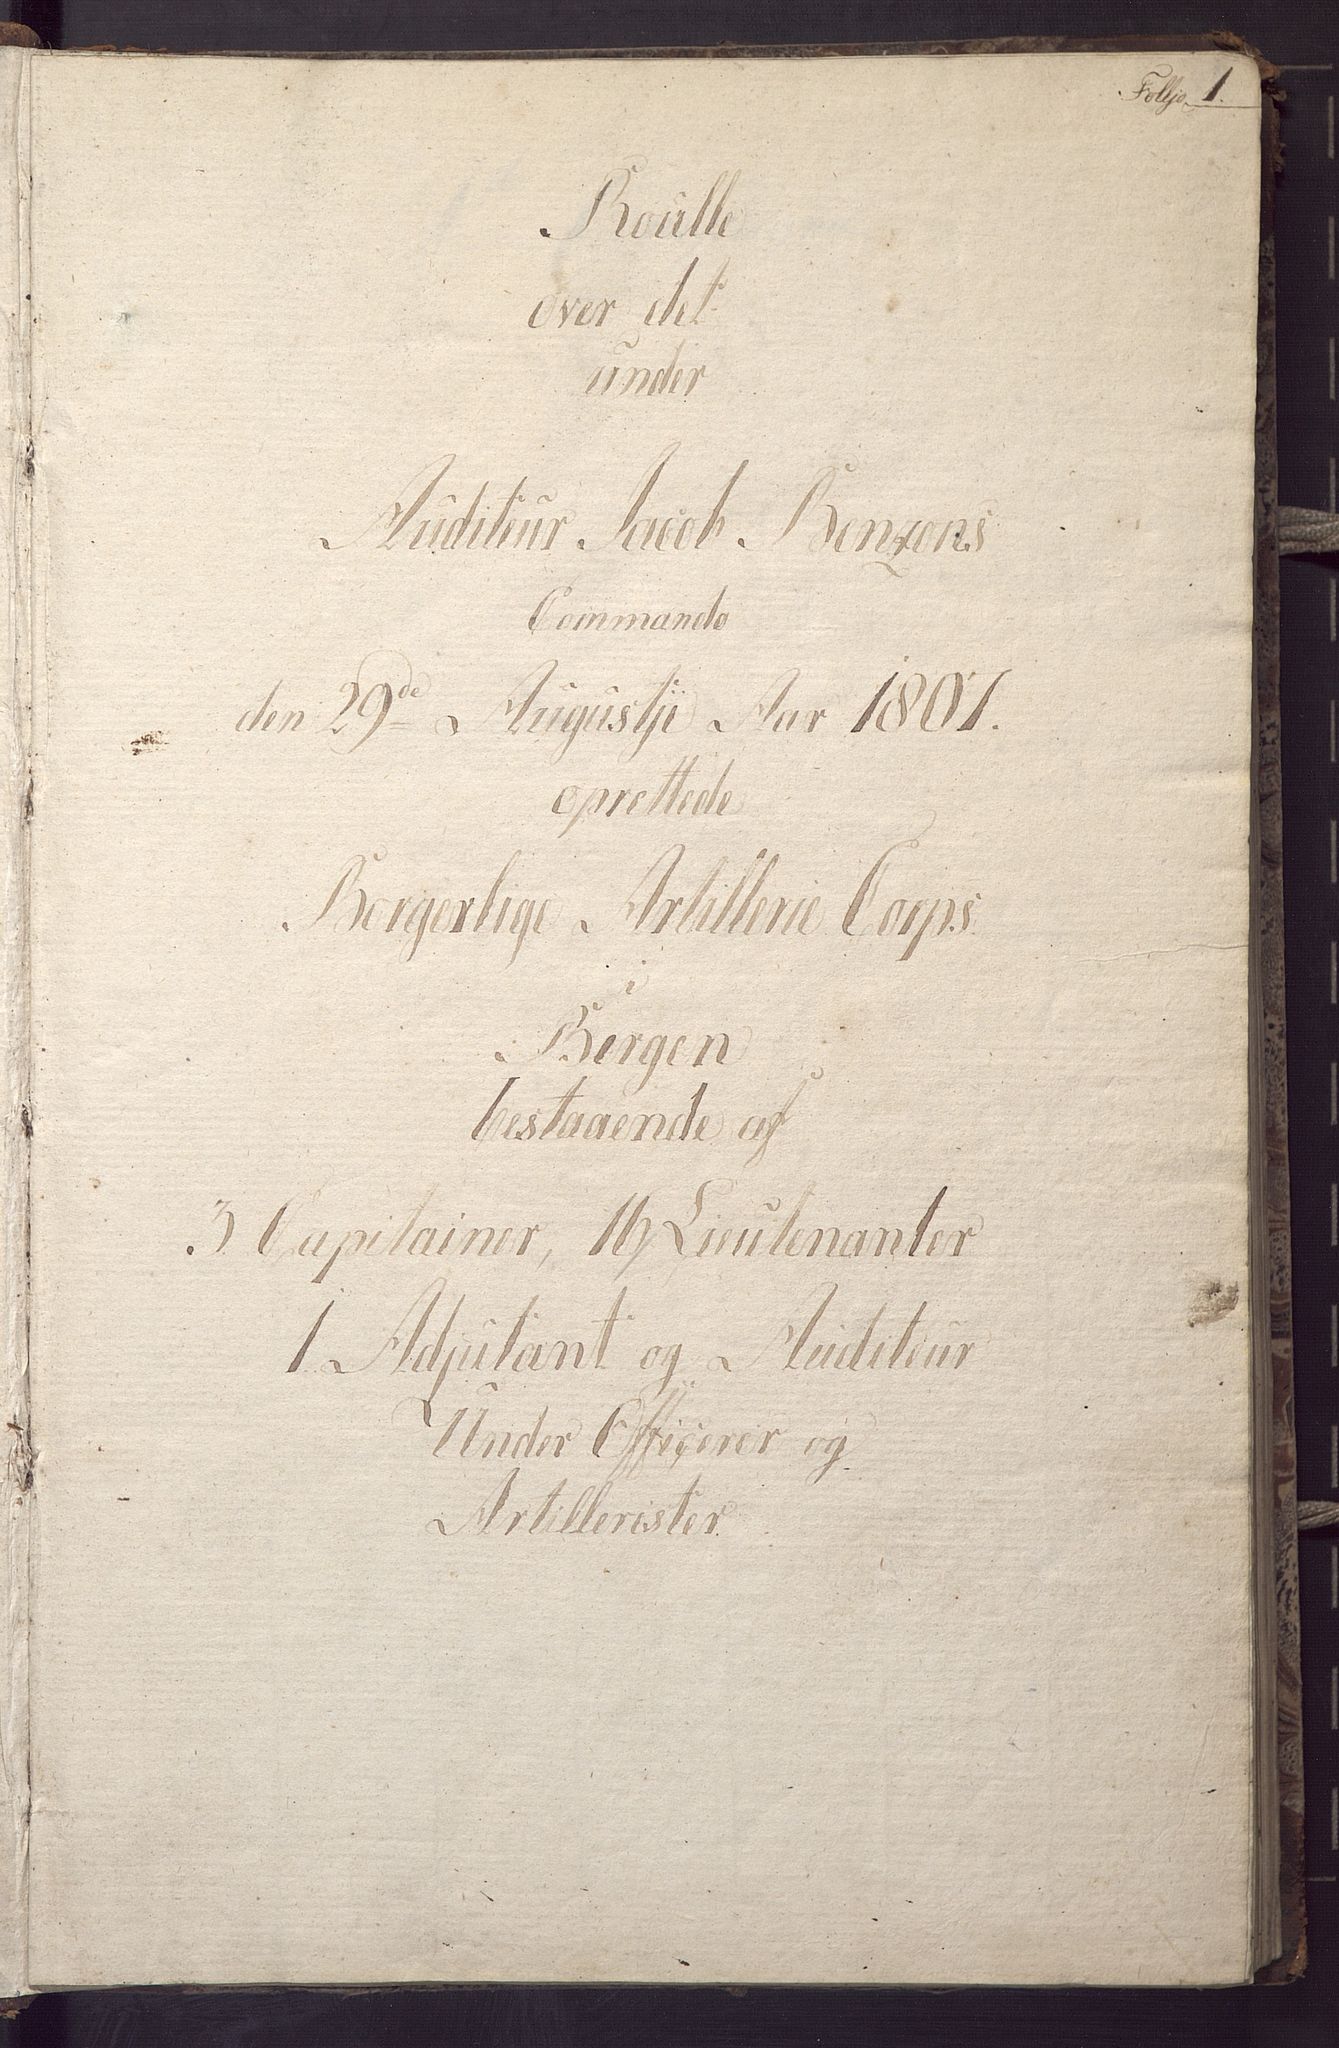 Folljo 1.
Roulle
over det
under
Auditeur Jacob Benzons
Commando
den 29de Augustji Aar 1801.
oprettede
Borgerlige Artillerie Corps
i
Bergen
bestaaende af
3 Capitainer, 16 Lieutenanter
1 Adjutant og Auditeur
Under Officerer og
Artillerister